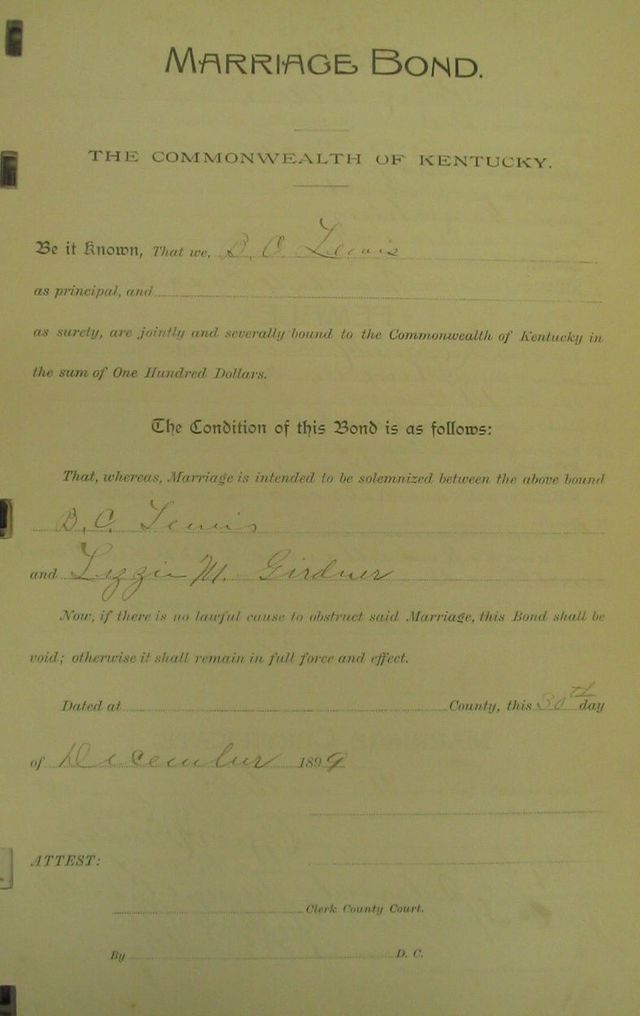 MARRIAGE BOND.
THE COMMONWEALTH OF KENTUCKY.
Be it Known, That we, B. C. Lewis
as principal, and
as surety, are jointly and severally bound to the Commonwealth of Kentucky in
the sum of One Hundred Dollars.
The Condition of this Bond is as follows:
That, whereas, Marriage is intended to be solemnized between the above bound
B. C. Lewis
and Lizzie M. Girdner
Now, if there is no lawful cause to obstruct said Marriage, this Bond shall be
void; otherwise it shall remain in full force and effect.
Dated at County, this 30th day
of December 1899
ATTEST:
Clerk County Court.
By D. C.